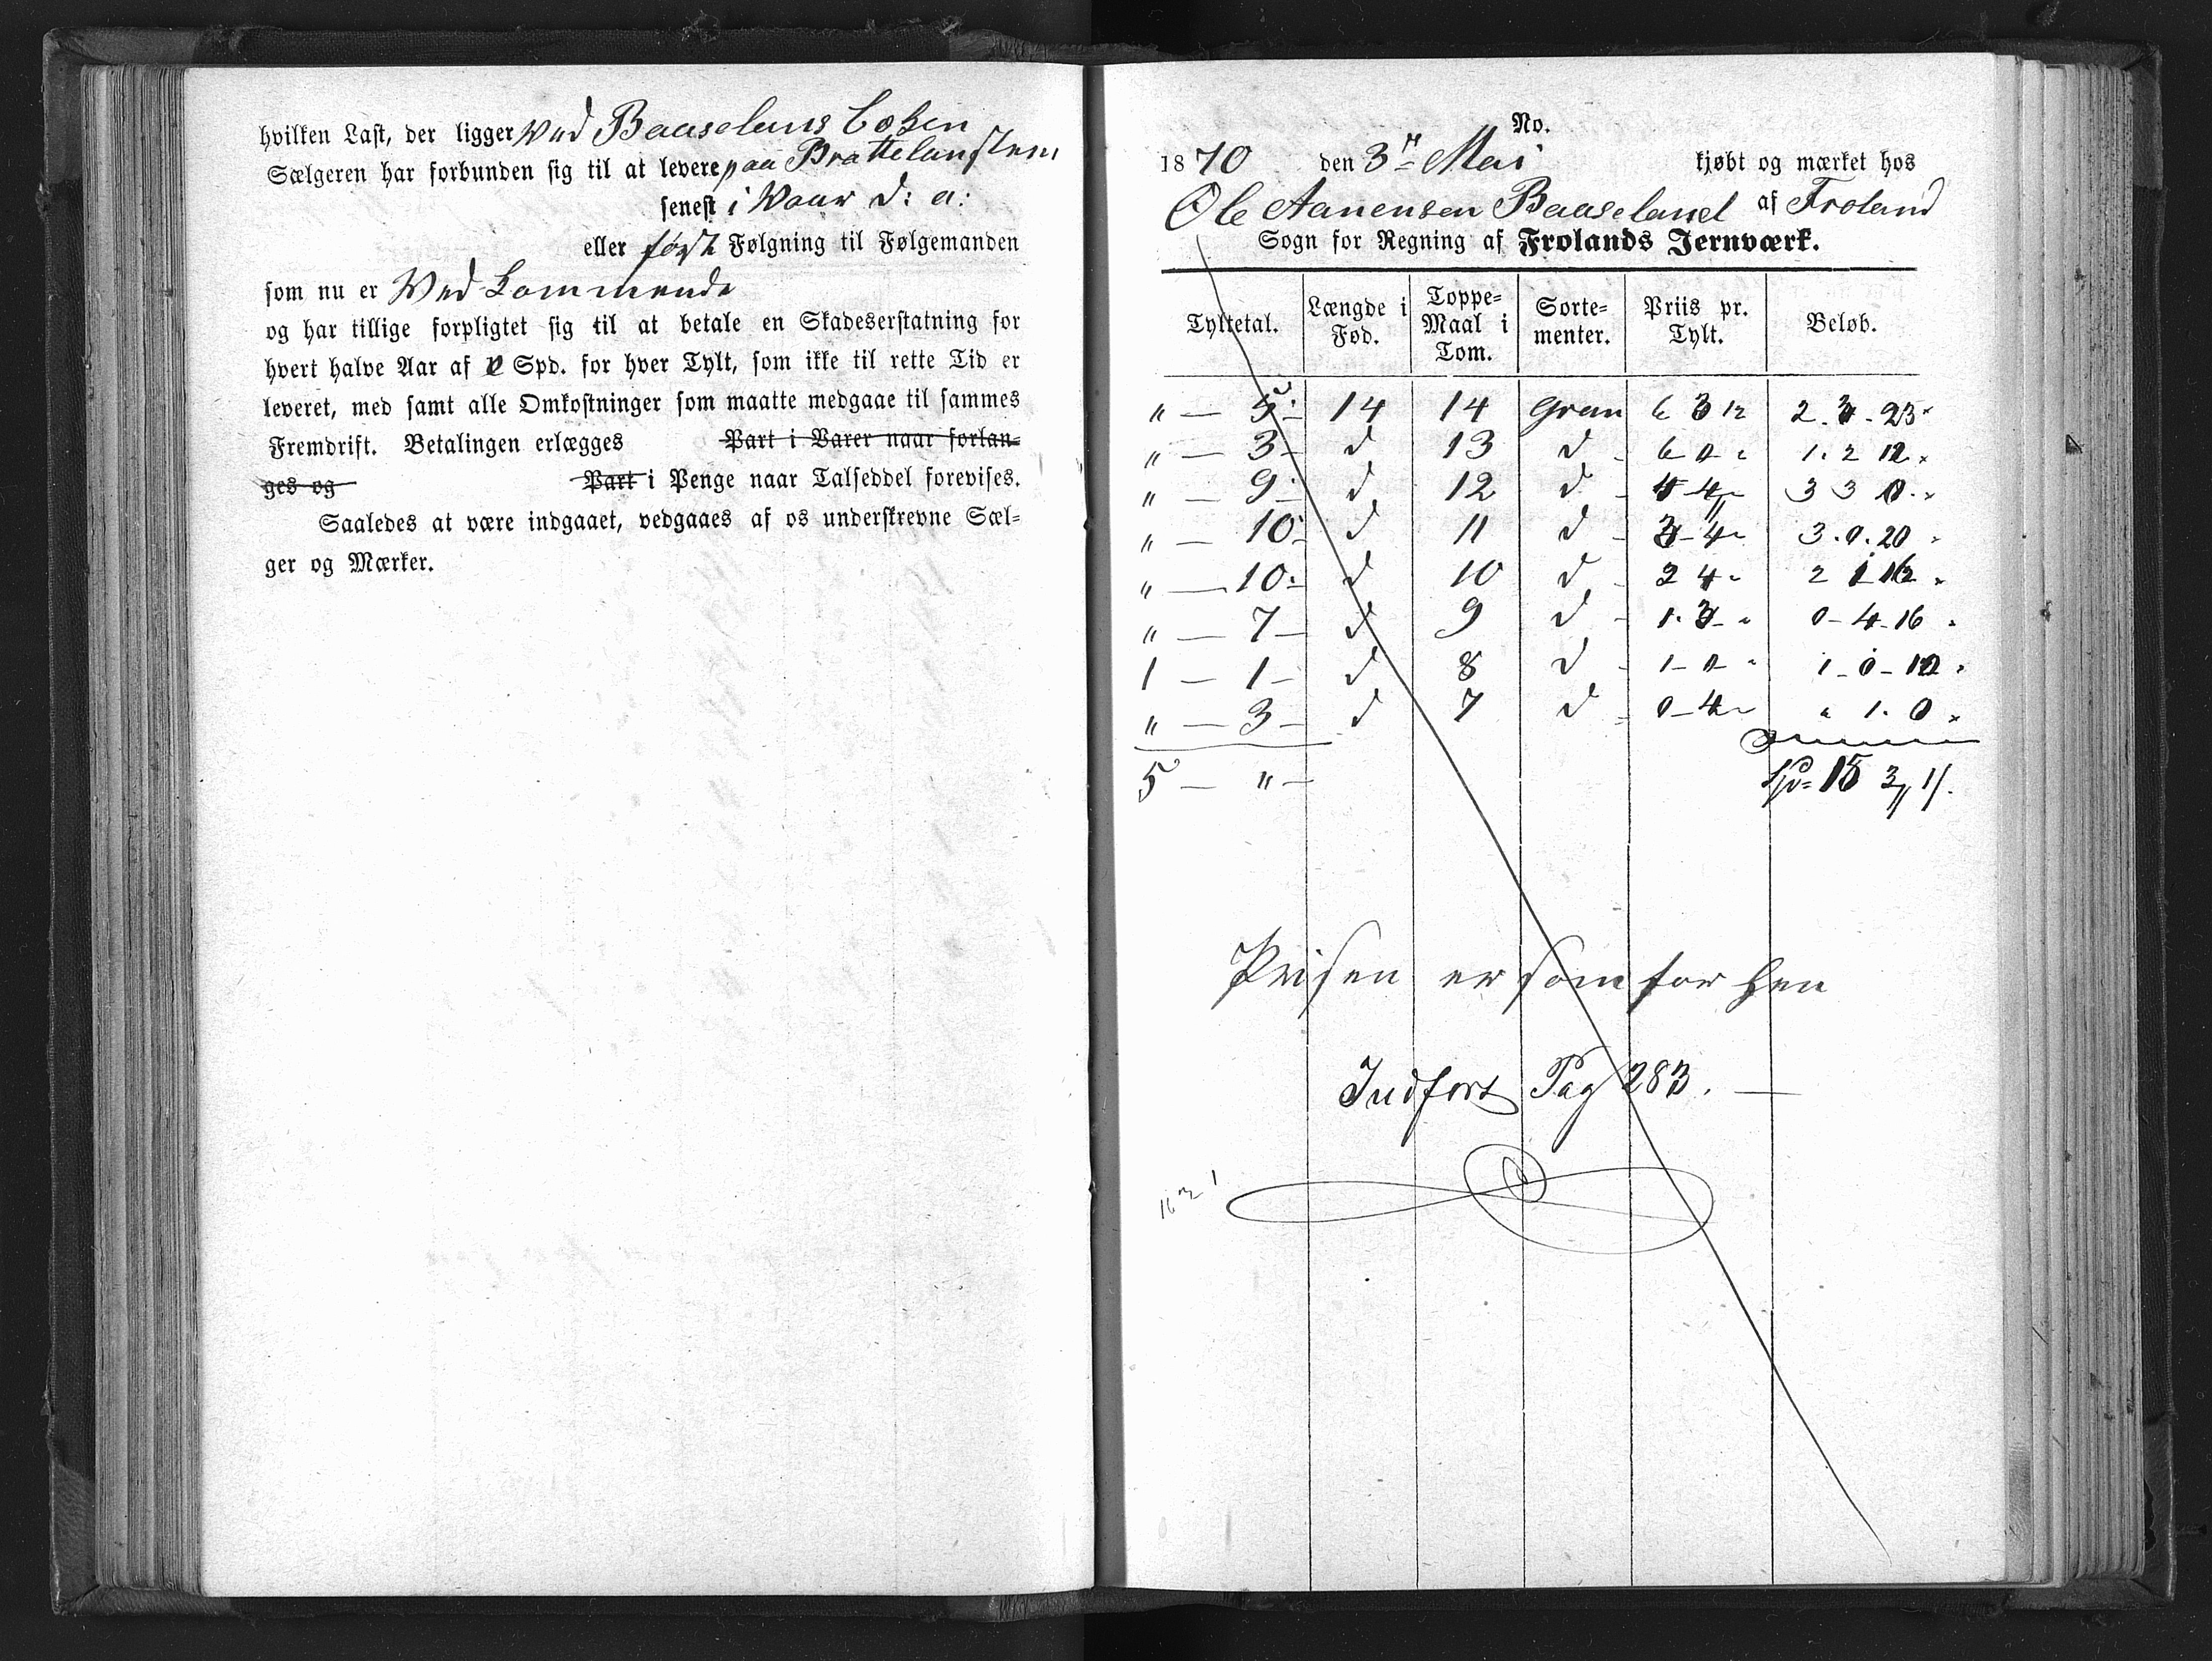 hvilken Last, der ligger Wed Baaselans Bohen
Sælgeren har forbunden sig til at levere paa Brattelansteni
senest i Waar d: a:
eller først Følgning til Følgemanden
som nu er Wed Kommende
og har tillige forpligtet sig til at betale en Skadeserstatning for
hvert halve Aar af Spd. for hver Tylt, som ikke til rette Tid er
leveret, med samt alle Omkostninger som maatte medgaae til sammes
Fremdrift. Betalingen erlægges Part i Varer naar forlan-
ges og Part i Penge naar Talseddel forevises.
Saaledes at være indgaaet, vedgaaes af os underskrevne Sæl-
ger og Mærker.
No.
1870 den 3die Mai kjøbt og mærket hos
Ole Aanensen Baaseland af Froland
Sogn for Regning af Frolands Jernværk.
Tyltetal. Længde i Fod. Toppe-Maal i Tom. Sorte-menter. Priis pr. Tylt. Beløb.
" — 5 - 14 14 Gran 6 3 12 2. 3 - 23
" — 3 - d 13 d - 6 0 " 1. 2 12
" — 9 - d 12 d - 4 4 " 3 3 0
" — 10 - d 11 d - 3 - 4 " 3. 0. 20
" — 10 - d 10 d - 2 4 " 2 1 16
" — 7 - d 9 d - 1. 3 - " 0 - 4 - 16
1 — 1 - d 8 d - 1 - 0 - " 1 - 0 - 10
" — 3 - d 7 d - 0 - 4 - " " 1. 0
5 — " — Spd 15 3 " 1.
Prisen er som før hen
Indført Pag 283. —
16 3 1